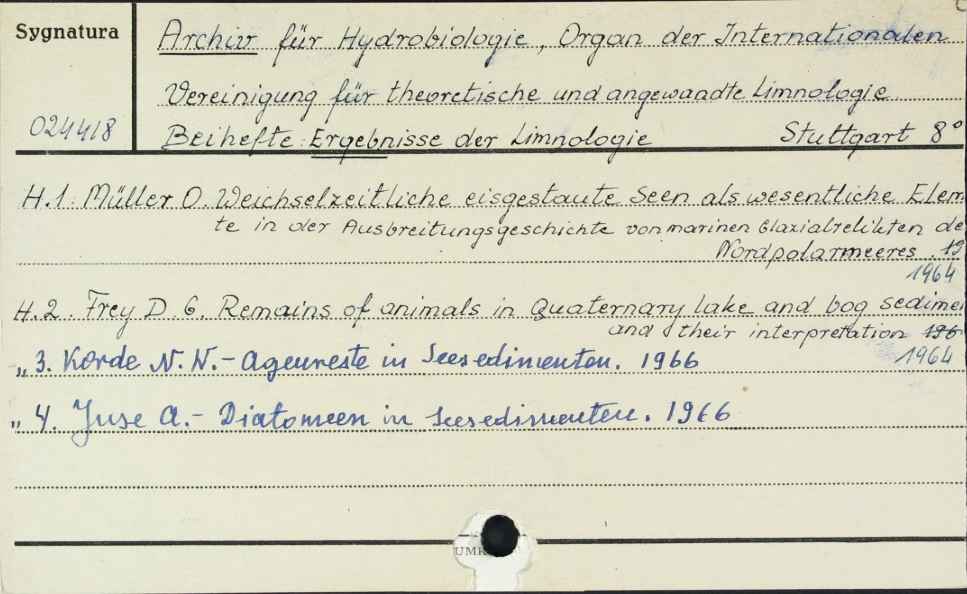 Sygnatura
024418
Archiv für Hydrobiologie, Organ der Internationalen
Vereinigung für theoretische und angewandte Limnologie
Beihefte: Ergebnisse der Limnologie Stuttgart 8°
H.1. Müller O. Weichselzeitliche eisgestaute Seen als wesentliche Elem
te in der Ausbreitungsgeschichte von marinen Glazialrelikten de
Nordpolarmeeres. 19
1964
H.2. Frey D. G. Remains of animals in Quaternary lake and bog sedime
and their interpretation 196
1964
„ 3. Korde N. N. - Ageureste in Seesedimenten. 1966
„ 4. Juse A. - Diatomeen in Seesedimenten. 1966
UMK